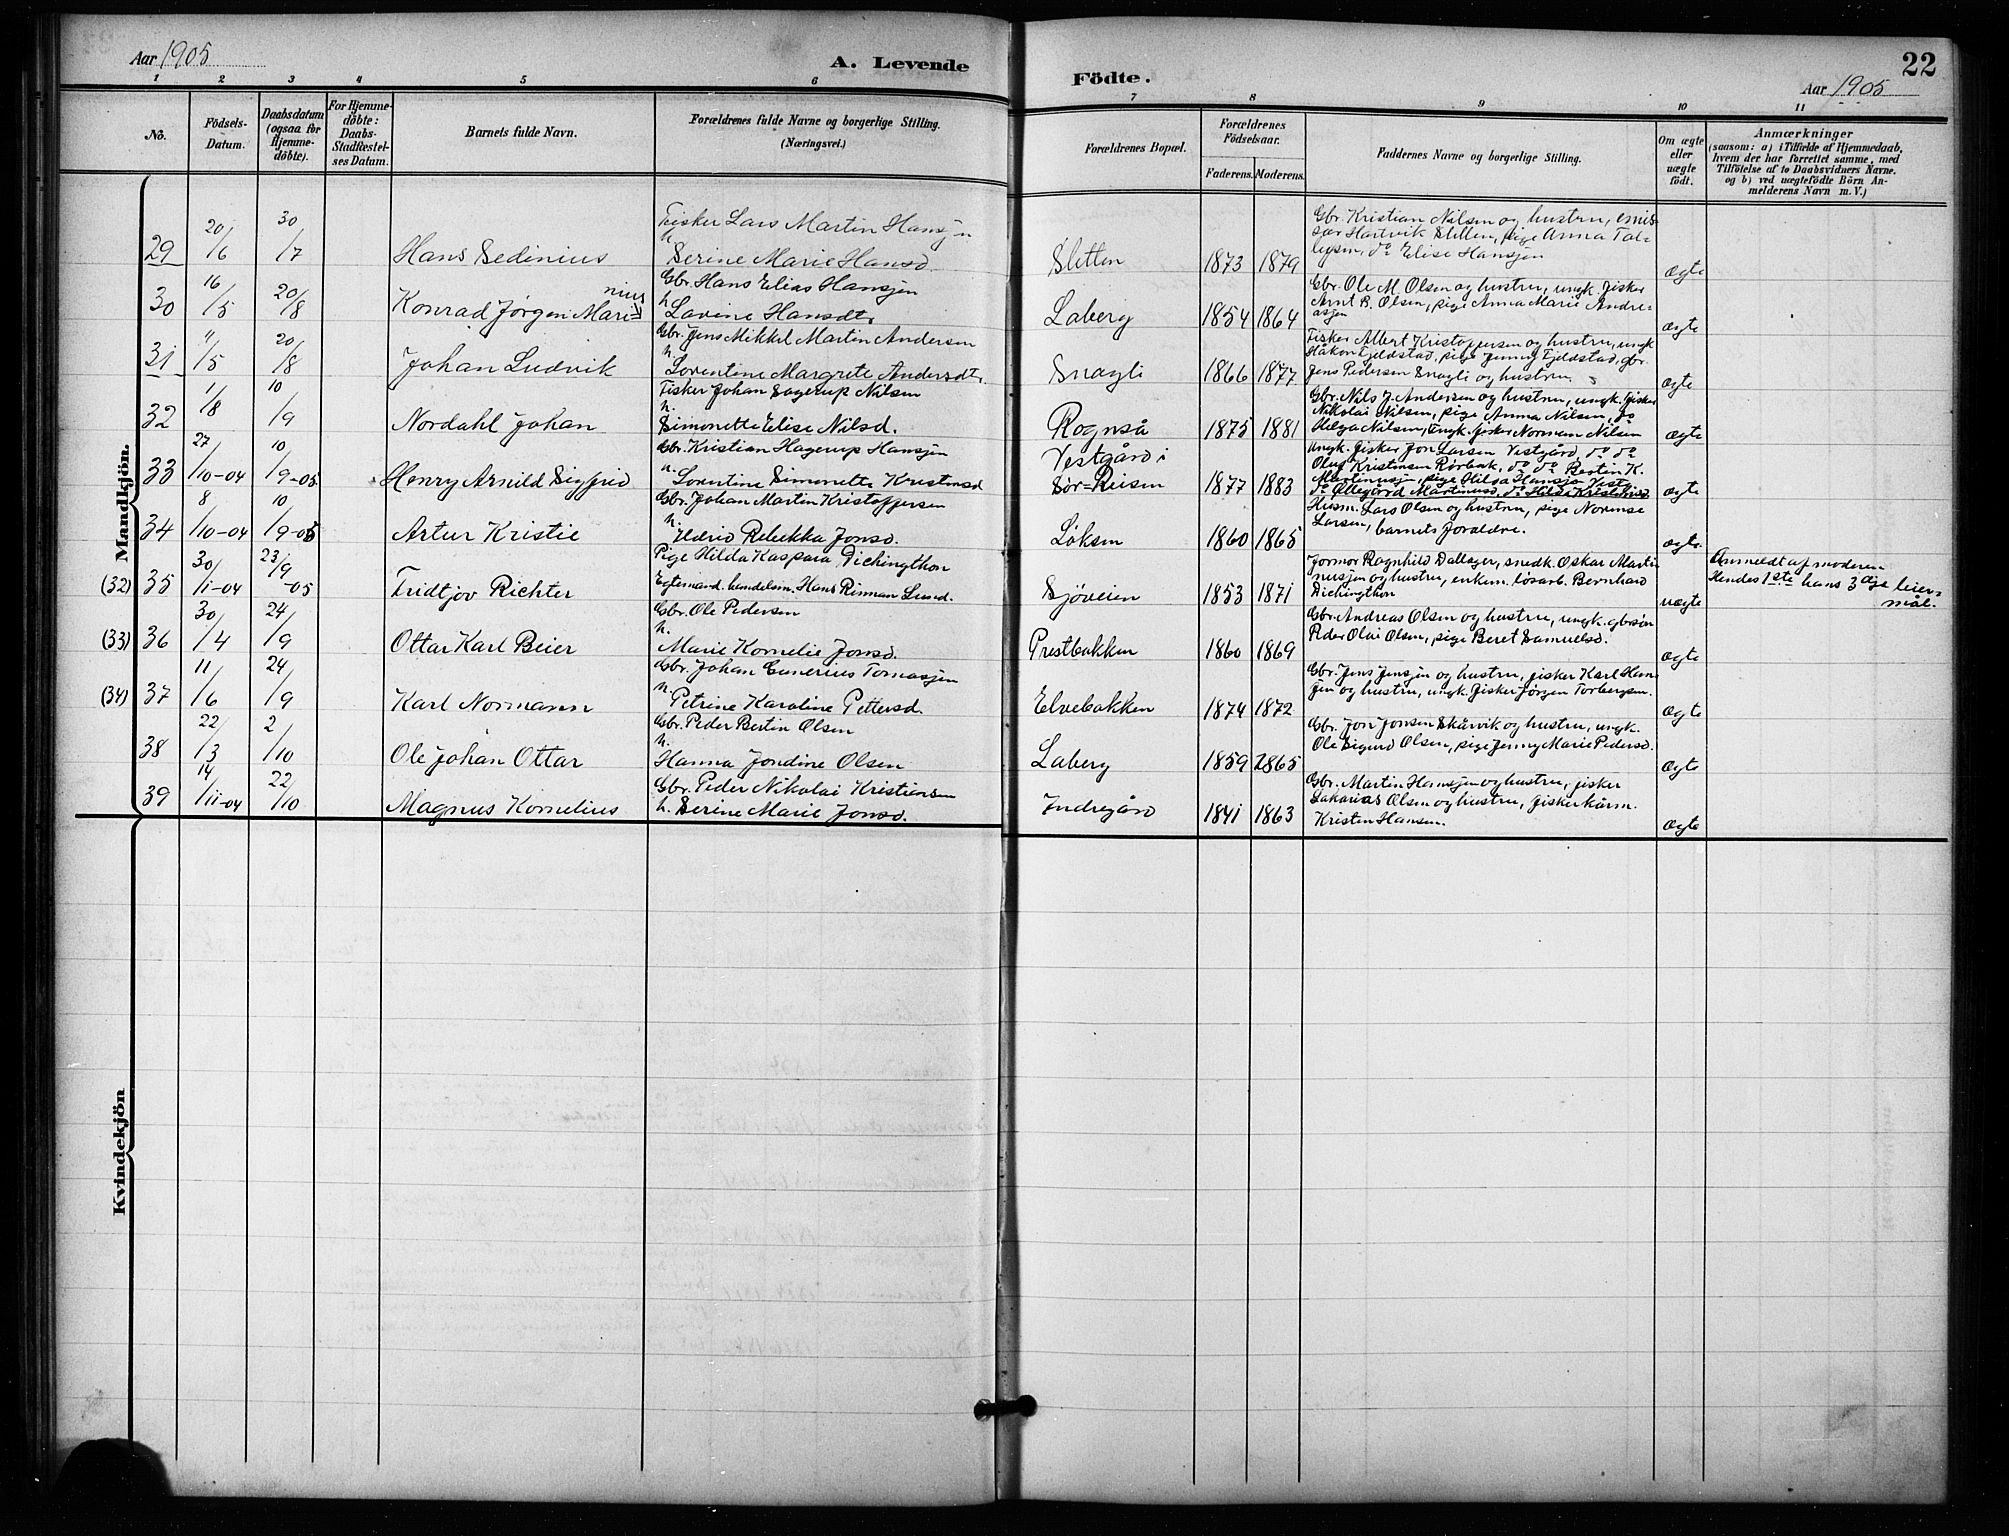 Aar 1905
A. Levende
Födte.
22
Aar 1905
1 2 3 4 5 6 7 8 9 10 11
No.
Födsels-Datum.
Daabsdatum (ogsaa for Hjemmedöbte).
For Hjemmedöbte: Daabs-Stadfæstelses Datum.
Barnets fulde Navn.
Forældrenes fulde Navne og borgerlige Stilling. (Næringsvei.)
Forældrenes Bopæl.
Forældrenes Födselsaar.
Faderens. Moderens.
Faddernes Navne og borgerlige Stilling.
Om ægte eller uægte født.
Anmærkninger
(saasom: a) i Tilfælde af Hjemmedaab, hvem der har forrettet samme, med Tilföielse af to Daabsvidners Navne. og b) ved uægtefödte Börn Anmelderens Navn m. V.)
Mandkjön.
29 20/6 30/7 Hans Sedinius
Fisker Lars Martin Hansen
h. Serine Marie Hansd.
Sletten 1873 1879
Gbr. Kristian Nilsen og hustru,
Hartvik Sletten, pige Anna
d° Elise Hansen
ægte
30 16/5 20/8 Konrad Jørgen Marinius
Gbr. Hans Elias Hansen
h. Lovine Hansdt.
Laberg 1854 1864
Gbr. Ole M. Olsen og hustru, ungk. fisker
Arnt B. Olsen, pige Anna Marie Andreasen
ægte
31 11/5 20/8 Johan Ludvik
Gbr. Jens Mikkel Martin Andersen
h. Lorentine Margrete Andersdt.
Snagli 1866 1877
Fisker Albert Kristoffersen og hustru, ungk.
Håkon Fjeldstad, pige Jenny Fjeldstad, gbr.
Jens Pedersen Snagli og hustru
ægte
32 1/8 10/9 Nordahl Johan
Fisker Johan Hagerup Nilsen
h. Simonette Elise Nilsd.
Rognså 1875 1881
Gbr. Nils J. Andersen og hustru, ungk. fisker
Nikolai Nilsen, pige Anna Nilsen, d°
Helga Nilsen, ungk. fisker Norman Nilsen
ægte
33 27/10-04 10/9-05 Henry Arnild Sigfrid
Gbr. Kristian Hagerup Hansen
h. Lorentine Simonette Kristensd
Vestgård i Sør-Reisen 1877 1883
Ungk. fisker Jon Larsen Vestgård, d° d°
Oluf Kristensen Rørbak, d° d° Bertin K.
Martinusen, pige Hilda Hansen
ægte
34 8/10-04 10/9-05 Artur Kristie
Gbr. Johan Martin Kristoffersen
h. Rebekka Jonsd.
Løksen 1860 1865
Husm. Lars Olsen og hustru, pige
Larsen, barnets forældre.
ægte.
(32) 35 30/11-04 23/9-05 Fridtjov Richter
Pige Hilda Kaspara Dichingthon
Egtemand, handelsm. Hans Rinman Lund.
Sjøveien 1853 1871
Jormor Ragnhild Dallager, snedk. Oskar Martinusen og hustru, enkem. løsarb. Bernhard
Dichingthon
uægte
Anmeldt af moderen
Hendes 1ste hans 3die leiermål.
(33) 36 30/4 24/9 Ottar Karl Beier
Gbr. Ole Pedersen
h. Marie Kornelie Jonsd.
Prestbakken 1860 1869
Gbr. Andreas Olsen og hustru, ungk. gbrsøn
Peder Olai Olsen, pige Beret Samuelsd.
ægte
(34) 37 11/6 24/9 Karl Normann
Gbr. Johan Cunerius Tomasjen
h. Petrine Karoline Pettersd.
Elvebakken 1874 1872
Gbr. Jens Jensen og hustru, fisker Karl Hansen og hustru, ungk. fisker Jørgen Torbergsen.
ægte
38 22/3 2/10 Ole Johan Ottar
Gbr. Peder Bertin Olsen
h. Hanna Jondine Olsen
Laberg 1859 1865
Gbr. Jon Jonsen Skårvik og hustru, ungk.
Ole Sigurd Olsen, pige Jenny Marie Pedersd.
ægte
39 14/11-04 22/10 Magnus Kornelius
Gbr. Peder Nikolai Kristiansen
h. Serine Marie Jonsd.
Indregård 1841 1863
Gbr. Martin Hansen og hustru, fisker
Sakarias Olsen og hustru, fisker kårm.
Kristen Hansen.
ægte
Kvindekjön